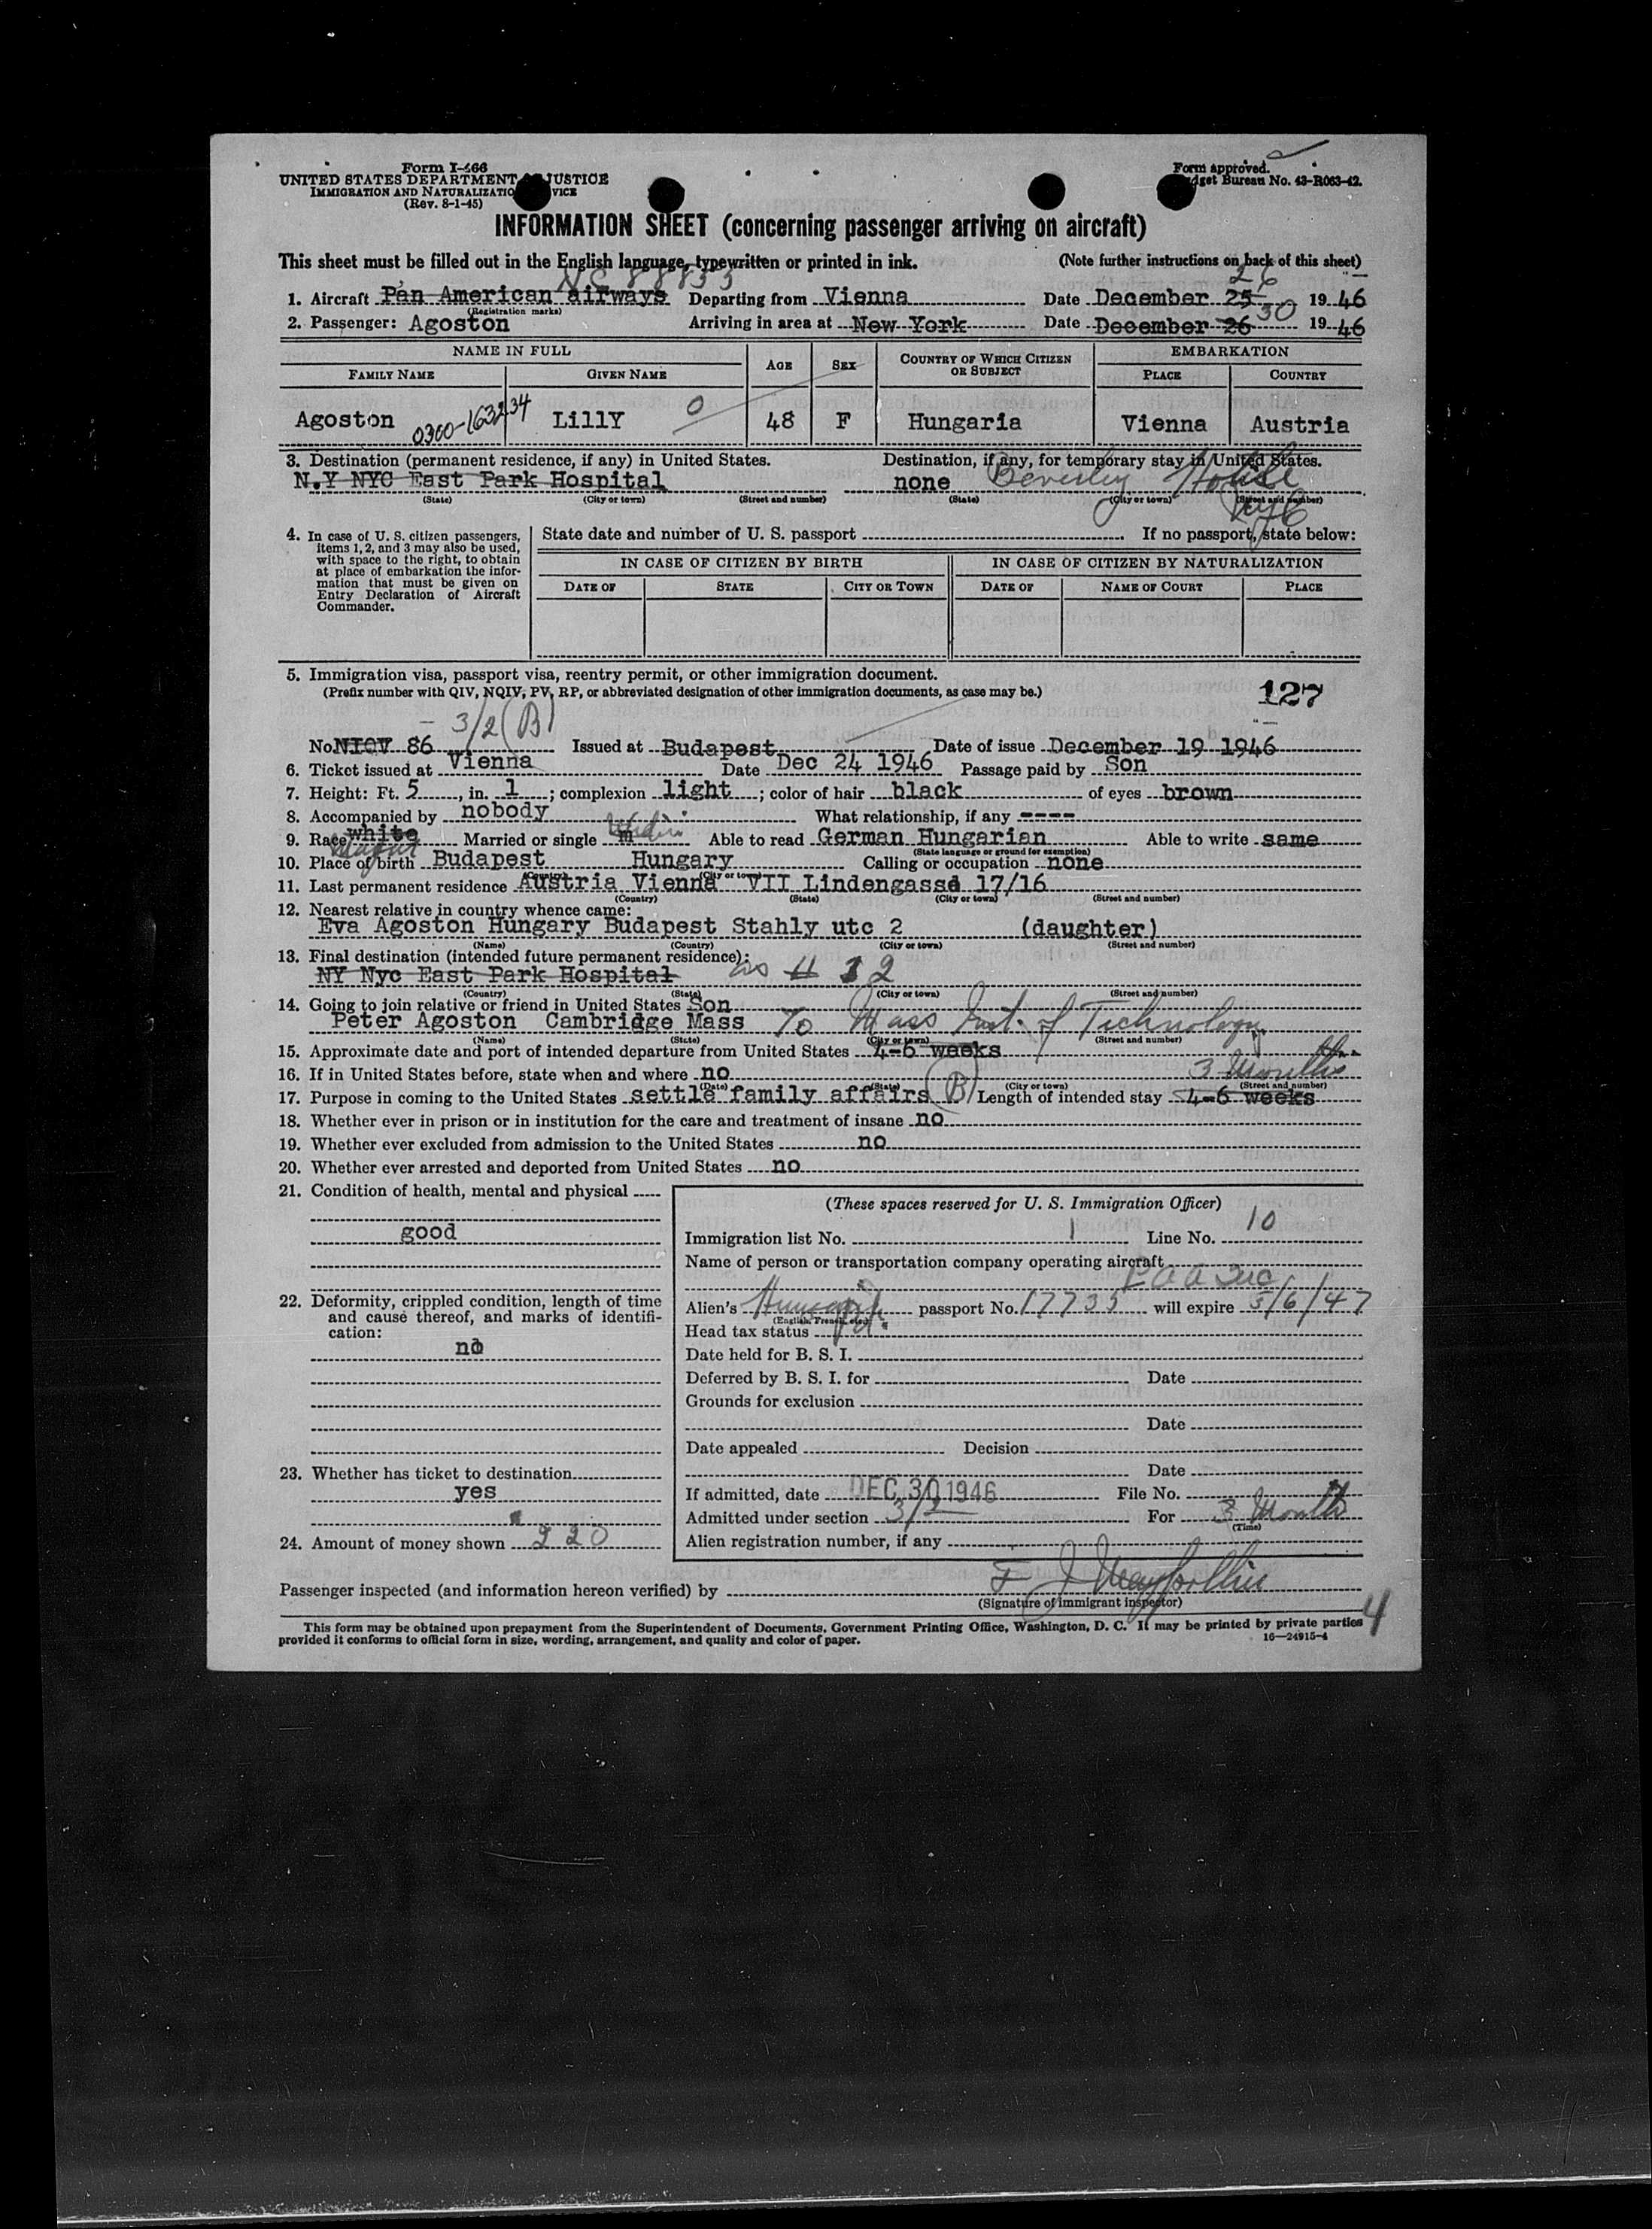 Form I-466
UNITED STATES DEPARTMENT JUSTICE
IMMIGRATION AND NATURALIZATIO VICE
(Rev. 8-1-45)
Form approved.
dget Bureau No. 43-R063-42.
INFORMATION SHEET (concerning passenger arriving on aircraft)
This sheet must be filled out in the English language, typewritten or printed in ink. (Note further instructions on back of this sheet)
NC 88833 26
1. Aircraft Pan American airways Departing from Vienna Date December 25 1946
(Registration marks) 30
2. Passenger: Agoston Arriving in area at New York Date December 26 1946
NAME IN FULL AGE SEX COUNTRY OF WHICH CITIZEN OR SUBJECT EMBARKATION
FAMILY NAME GIVEN NAME PLACE COUNTRY
Agoston 0300-163234 LillY 0 48 F Hungaria Vienna Austria
3. Destination (permanent residence, if any) in United States. Destination, if any, for temporary stay in United States.
N.Y NYC East Park Hospital none Beverley Hotel
(State) (City or town) (Street and number) (State) (City or town) (Street and number)
NYC
4. In case of U. S. citizen passengers, items 1, 2, and 3 may also be used, with space to the right, to obtain at place of embarkation the information that must be given on Entry Declaration of Aircraft Commander.
State date and number of U. S. passport If no passport, state below:
IN CASE OF CITIZEN BY BIRTH IN CASE OF CITIZEN BY NATURALIZATION
DATE OF STATE CITY OR TOWN DATE OF NAME OF COURT PLACE
5. Immigration visa, passport visa, reentry permit, or other immigration document.
(Prefix number with QIV, NQIV, PV, RP, or abbreviated designation of other immigration documents, as case may be.) 127
3/2 (B)
No. NIQV 86 Issued at Budapest Date of issue December 19 1946
6. Ticket issued at Vienna Date Dec 24 1946 Passage paid by Son
7. Height: Ft. 5, in. 1; complexion light; color of hair black of eyes brown
8. Accompanied by nobody What relationship, if any ----
9. Race white Married or single m Able to read German Hungarian Able to write same
(State language or ground for exemption)
10. Place of birth Budapest Hungary Calling or occupation none
(Country) (City or town)
11. Last permanent residence Austria Vienna VII Lindengasse 17/16
(Country) (State) (City or town) (Street and number)
12. Nearest relative in country whence came:
Eva Agoston Hungary Budapest Stahly utc 2 (daughter)
(Name) (Country) (City or town) (Street and number)
13. Final destination (intended future permanent residence):
NY Nyc East Park Hospital as # 12
(Country) (State) (City or town) (Street and number)
14. Going to join relative or friend in United States Son
Peter Agoston Cambridge Mass To Mass Inst. of Technology
(Name) (State) (City or town) (Street and number)
15. Approximate date and port of intended departure from United States 4-6 weeks
16. If in United States before, state when and where no 3 Months
(Date) (State) (City or town) (Street and number)
17. Purpose in coming to the United States settle family affairs (B) Length of intended stay 4-6 weeks
18. Whether ever in prison or in institution for the care and treatment of insane no
19. Whether ever excluded from admission to the United States no
20. Whether ever arrested and deported from United States no
21. Condition of health, mental and physical
good
22. Deformity, crippled condition, length of time and cause thereof, and marks of identification:
no
23. Whether has ticket to destination
yes
24. Amount of money shown 220
(These spaces reserved for U. S. Immigration Officer)
Immigration list No. 1 Line No. 10
Name of person or transportation company operating aircraft
P A A Inc
Alien's passport No. 17735 will expire 5/6/47
(English, French, etc.)
Head tax status
Date held for B. S. I.
Deferred by B. S. I. for Date
Grounds for exclusion
Date
Date appealed Decision
Date
If admitted, date DEC 30 1946 File No.
Admitted under section 3/2 For 3 Months
(Time)
Alien registration number, if any
Passenger inspected (and information hereon verified) by
(Signature of immigrant inspector)
4
This form may be obtained upon prepayment from the Superintendent of Documents, Government Printing Office, Washington, D. C. It may be printed by private parties
provided it conforms to official form in size, wording, arrangement, and quality and color of paper. 16—24915-4